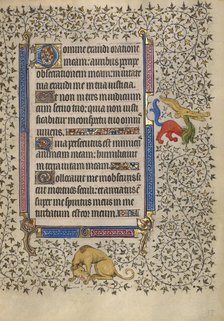 Domine exaudi orationē
meam: auribus percipe
obsecrationem meam: in veritate
tua exaudi me in tua iusticia.
Et non intres in iudicium
cum servo tuo: quia non
in conspectu tuo omnis
vivens
Quia persecutus est inimi
animam meam: humiliavit
in terra vitam meam
Collocavit me in obscuris
sicut mortuos seculi: et anxiatus est
super me spiritus meus in me
turbatum est cor meum.